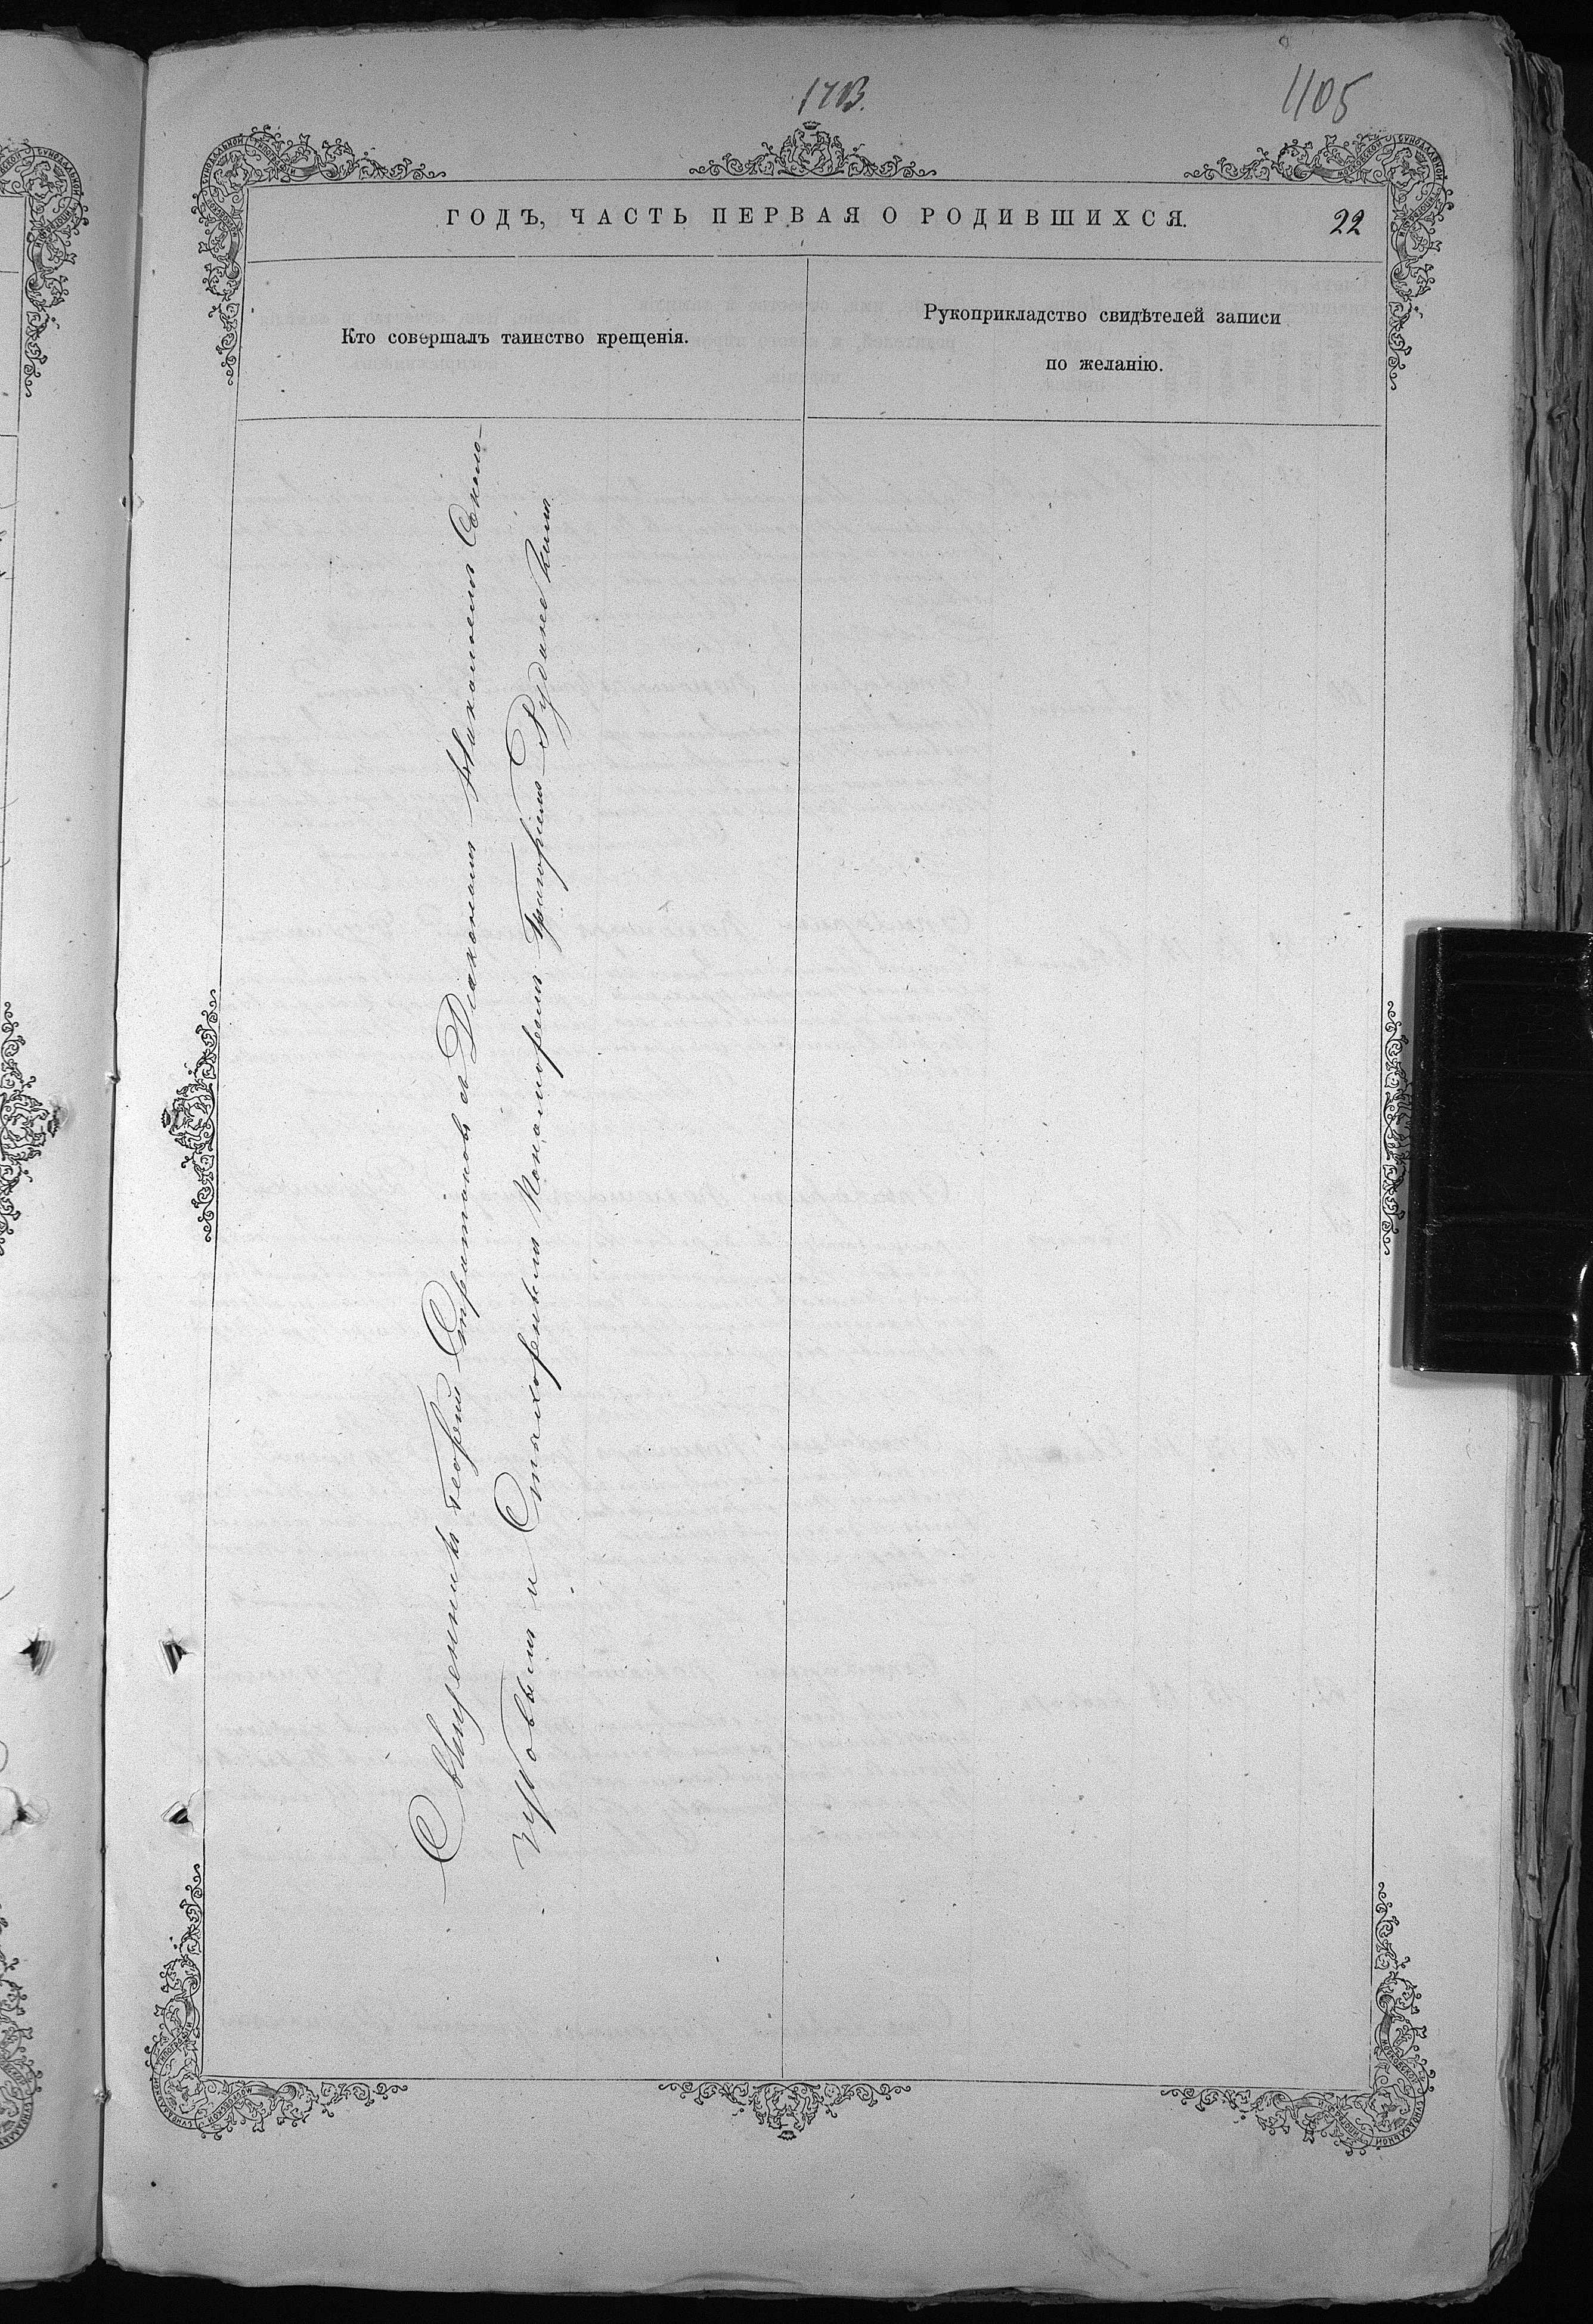 1105
ГОДЪ, ЧАСТЬ ПЕРВАЯ О РОДИВШИХСЯ. 22
Кто совершалъ таинство крещенія.
Рукоприкладство свидѣтелей записи
по желанію.
Священникъ Георгій Стратоновъ съ Діакономъ Николаемъ
и Стихоревымъ Пономоремъ Григоріемъ Рудневскимъ